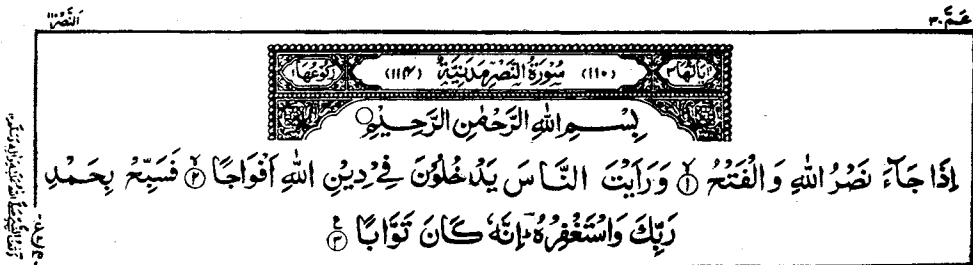 عَمَّ ٣٠
النَّصْر ١١٠
اٰيَاتُهَا ٣ (١١٠) سُوْرَةُ النَّصْرِ مَدَنِيَّةٌ (١١٤) رُكُوْعُهَا ١
بِسْمِ اللهِ الرَّحْمٰنِ الرَّحِيْمِ
اِذَا جَآءَ نَصْرُ اللهِ وَالْفَتْحُ ۙ﴿١﴾ وَرَاَيْتَ النَّاسَ يَدْخُلُوْنَ فِيْ دِيْنِ اللهِ اَفْوَاجًا ۙ﴿٢﴾ فَسَبِّحْ بِحَمْدِ
رَبِّكَ وَاسْتَغْفِرْهُ ؕ اِنَّهٗ كَانَ تَوَّابًا ﴿٣﴾